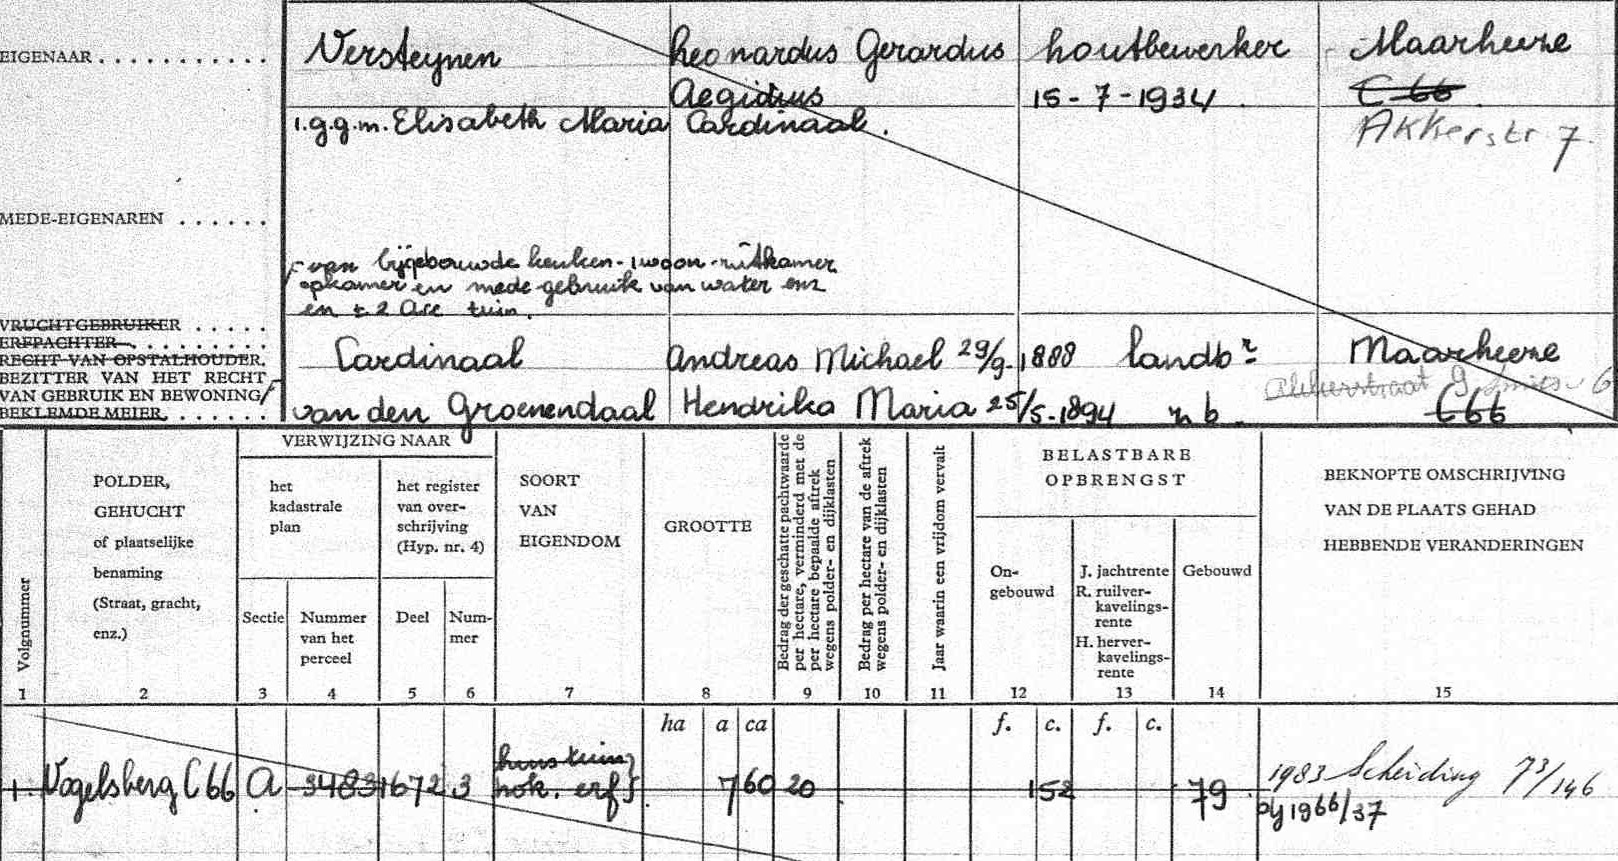 EIGENAAR . . . . . . . . . . . Versteynen Leonardus Gerardus houtbewerker Maarheeze
Aegidius 15-7-1934 C 66
i.g.g.m. Elisabeth Maria Cardinaal. Akkerstr 7.
MEDE-EIGENAREN . . . . . .
van bijgebouwde keuken-, woon-,
opkamer en mede gebruik van water enz
en ± 2 Are tuin.
VRUCHTGEBRUIKER . . . . .
ERFPACHTER . . . . . . . . .
RECHT VAN OPSTALHOUDER. Cardinaal Andreas Michael 29/9-1888 landbr Maarheeze
BEZITTER VAN HET RECHT
VAN GEBRUIK EN BEWONING/ Akkerstraat 9
BEKLEMDE MEIER . . . . . . van den Groenendaal Hendrika Maria 25/5-1894 z b. C66
Volgnummer
POLDER,
GEHUCHT
of plaatselijke
benaming
(Straat, gracht,
enz.)
VERWIJZING NAAR
het
kadastrale
plan
het register
van over-
schrijving
(Hyp. nr. 4)
Sectie
Nummer
van het
perceel
Deel
Num-
mer
SOORT
VAN
EIGENDOM
GROOTTE
Bedrag der geschatte pachtwaarde
per hectare, verminderd met de
per hectare bepaalde aftrek
wegens polder- en dijklasten
Bedrag per hectare van de aftrek
wegens polder- en dijklasten
Jaar waarin een vrijdom vervalt
BELASTBARE
OPBRENGST
On-
gebouwd
J. jachtrente
R. ruilver-
kavelings-
rente
H. herver-
kavelings-
rente
Gebouwd
BEKNOPTE OMSCHRIJVING
VAN DE PLAATS GEHAD
HEBBENDE VERANDERINGEN
1 2 3 4 5 6 7 8 9 10 11 12 13 14 15
ha a ca f. c. f. c.
huis tuin
1. Vogelsberg C 66 A 3483 1672 3 hok. erf 7 60 20 152 79 1983 Scheiding 73/146
bij 1966/37